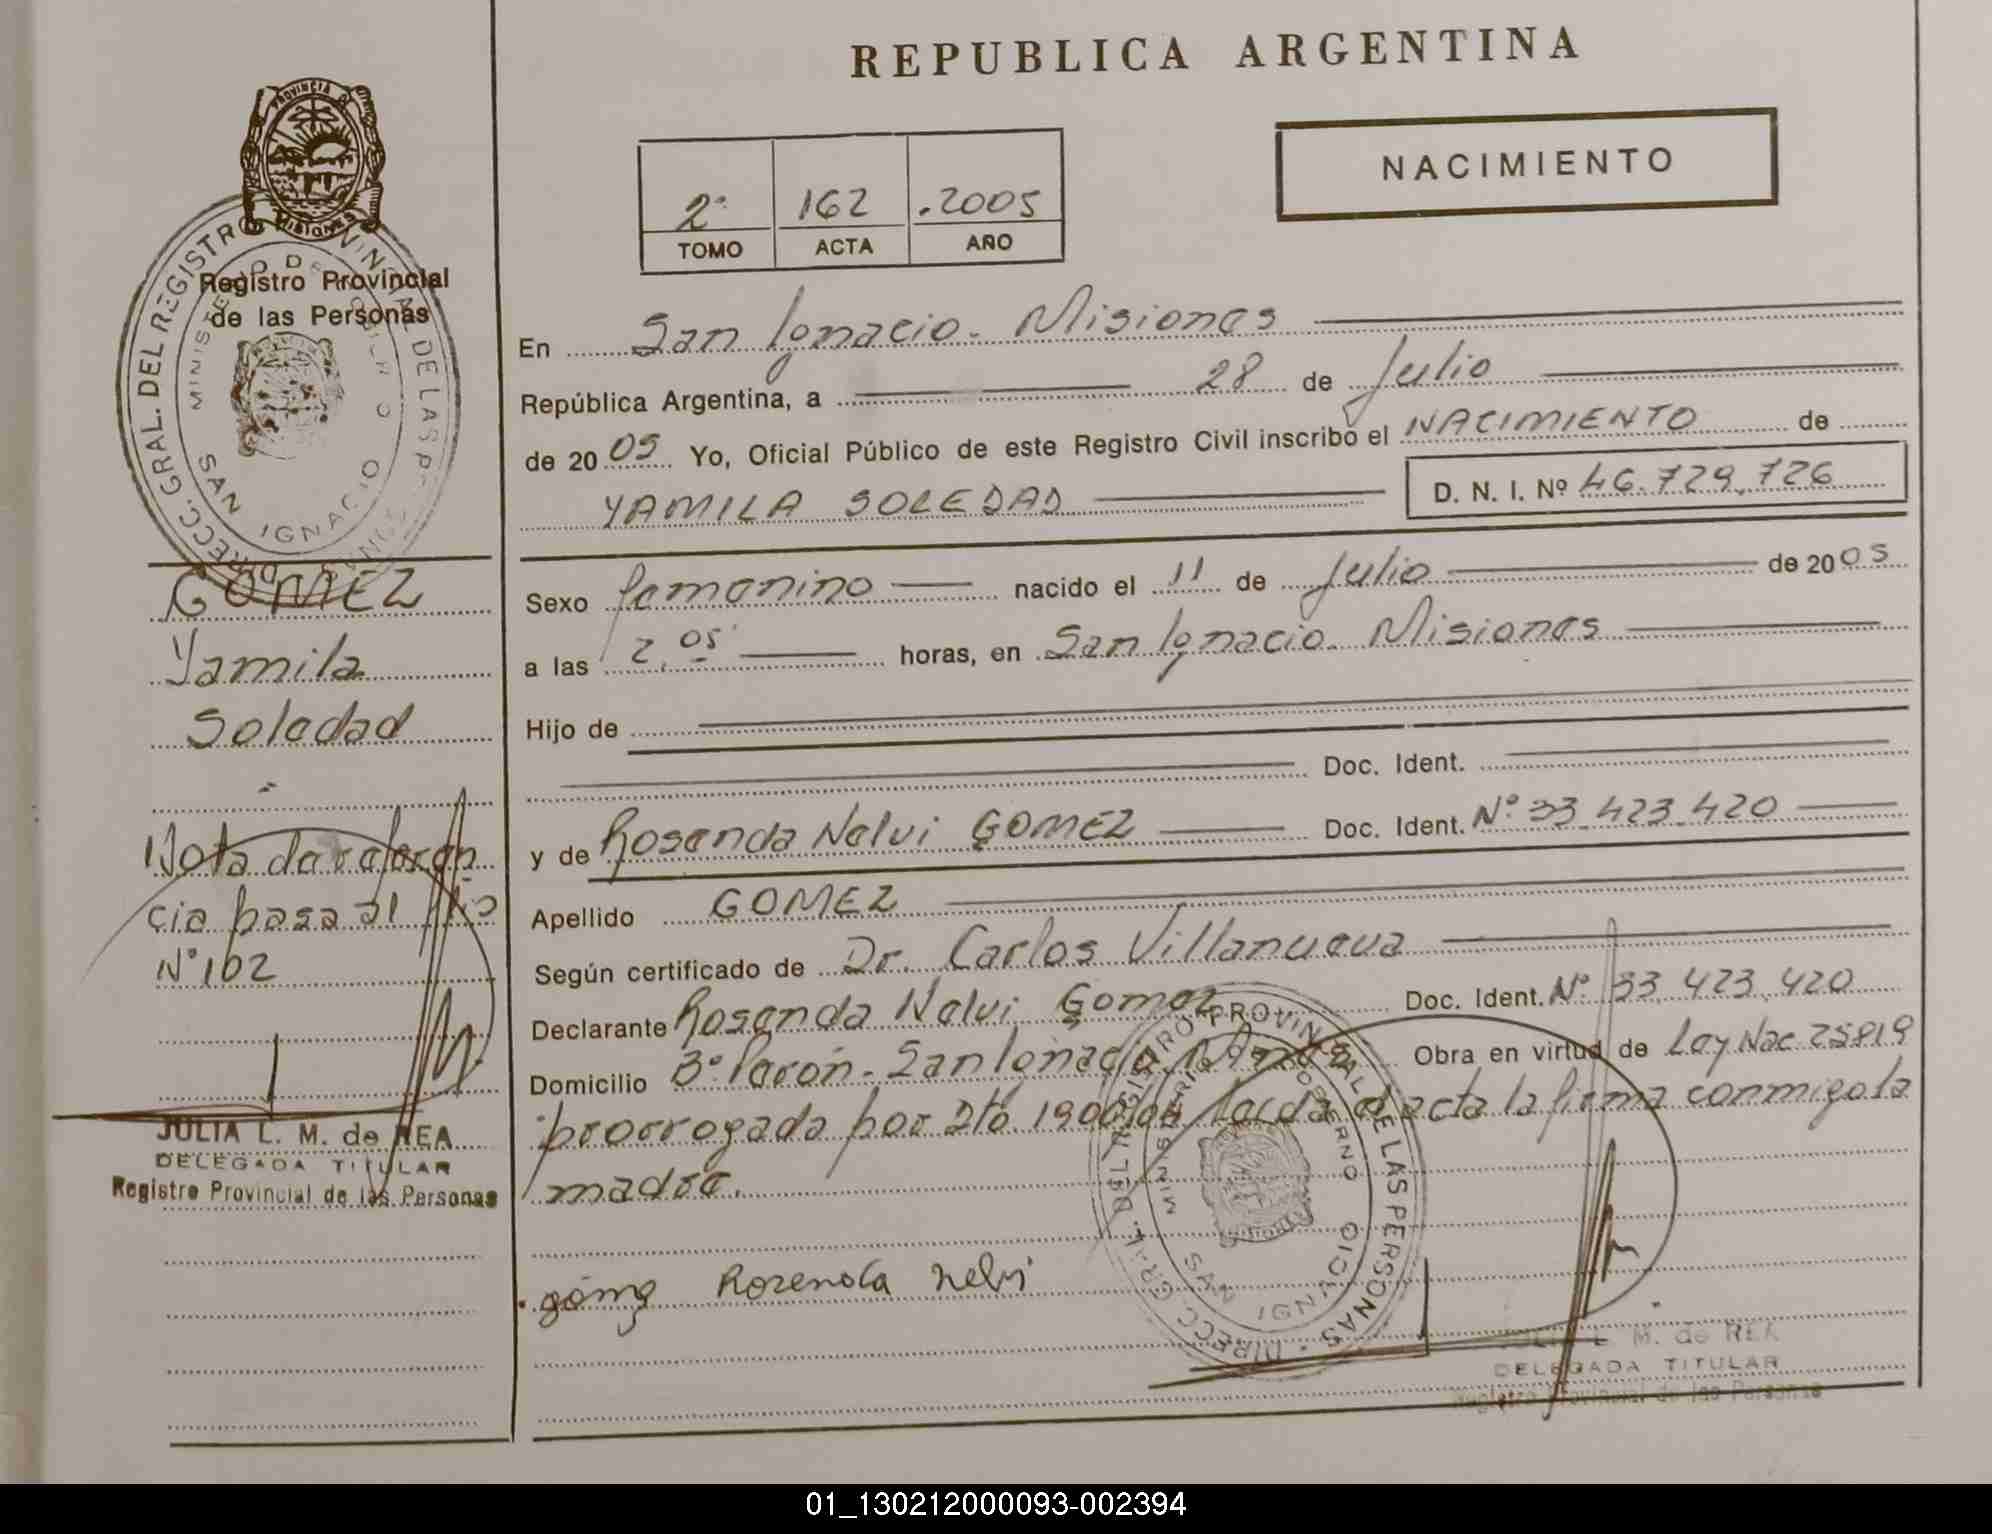 REPUBLICA ARGENTINA
NACIMIENTO
2º 162 .2005
TOMO ACTA AÑO
PROVINCIA DE
MISIONES
Registro Provincial
de las Personas
DIRECC. GRAL. DEL REGISTRO PROVINCIAL DE LAS PERSONAS
MINISTERIO DE GOBIERNO
SAN IGNACIO
GOMEZ
Yamila
Soledad
Nota de referen
cia pasa al flio
Nº 102
JULIA L. M. de REA
DELEGADA TITULAR
Registro Provincial de las Personas
En San Ignacio - Misiones
República Argentina, a 28 de Julio
de 2005 Yo, Oficial Público de este Registro Civil inscribo el NACIMIENTO de
YAMILA SOLEDAD D. N. I. Nº 46.729.726
Sexo femenino nacido el 11 de Julio de 2005
a las 2,05 horas, en San Ignacio - Misiones
Hijo de
Doc. Ident.
y de Rosenda Nelvi GOMEZ Doc. Ident. Nº 33.423.420
Apellido GOMEZ
Según certificado de Dr. Carlos Villanueva
Declarante Rosenda Nelvi Gomez Doc. Ident. Nº 33.423.420
Domicilio Bº Perón - San Ignacio Obra en virtud de Ley Nac 25819
prorrogada por Dto. acta la firma conmigo la
madre.
gómez Rozenda Nelvi
DIRECC. GRAL. DEL REGISTRO PROVINCIAL DE LAS PERSONAS
MINISTERIO DE GOBIERNO
SAN IGNACIO
JULIA L. M. de REA
DELEGADA TITULAR
Registro Provincial de las Personas
01_130212000093-002394